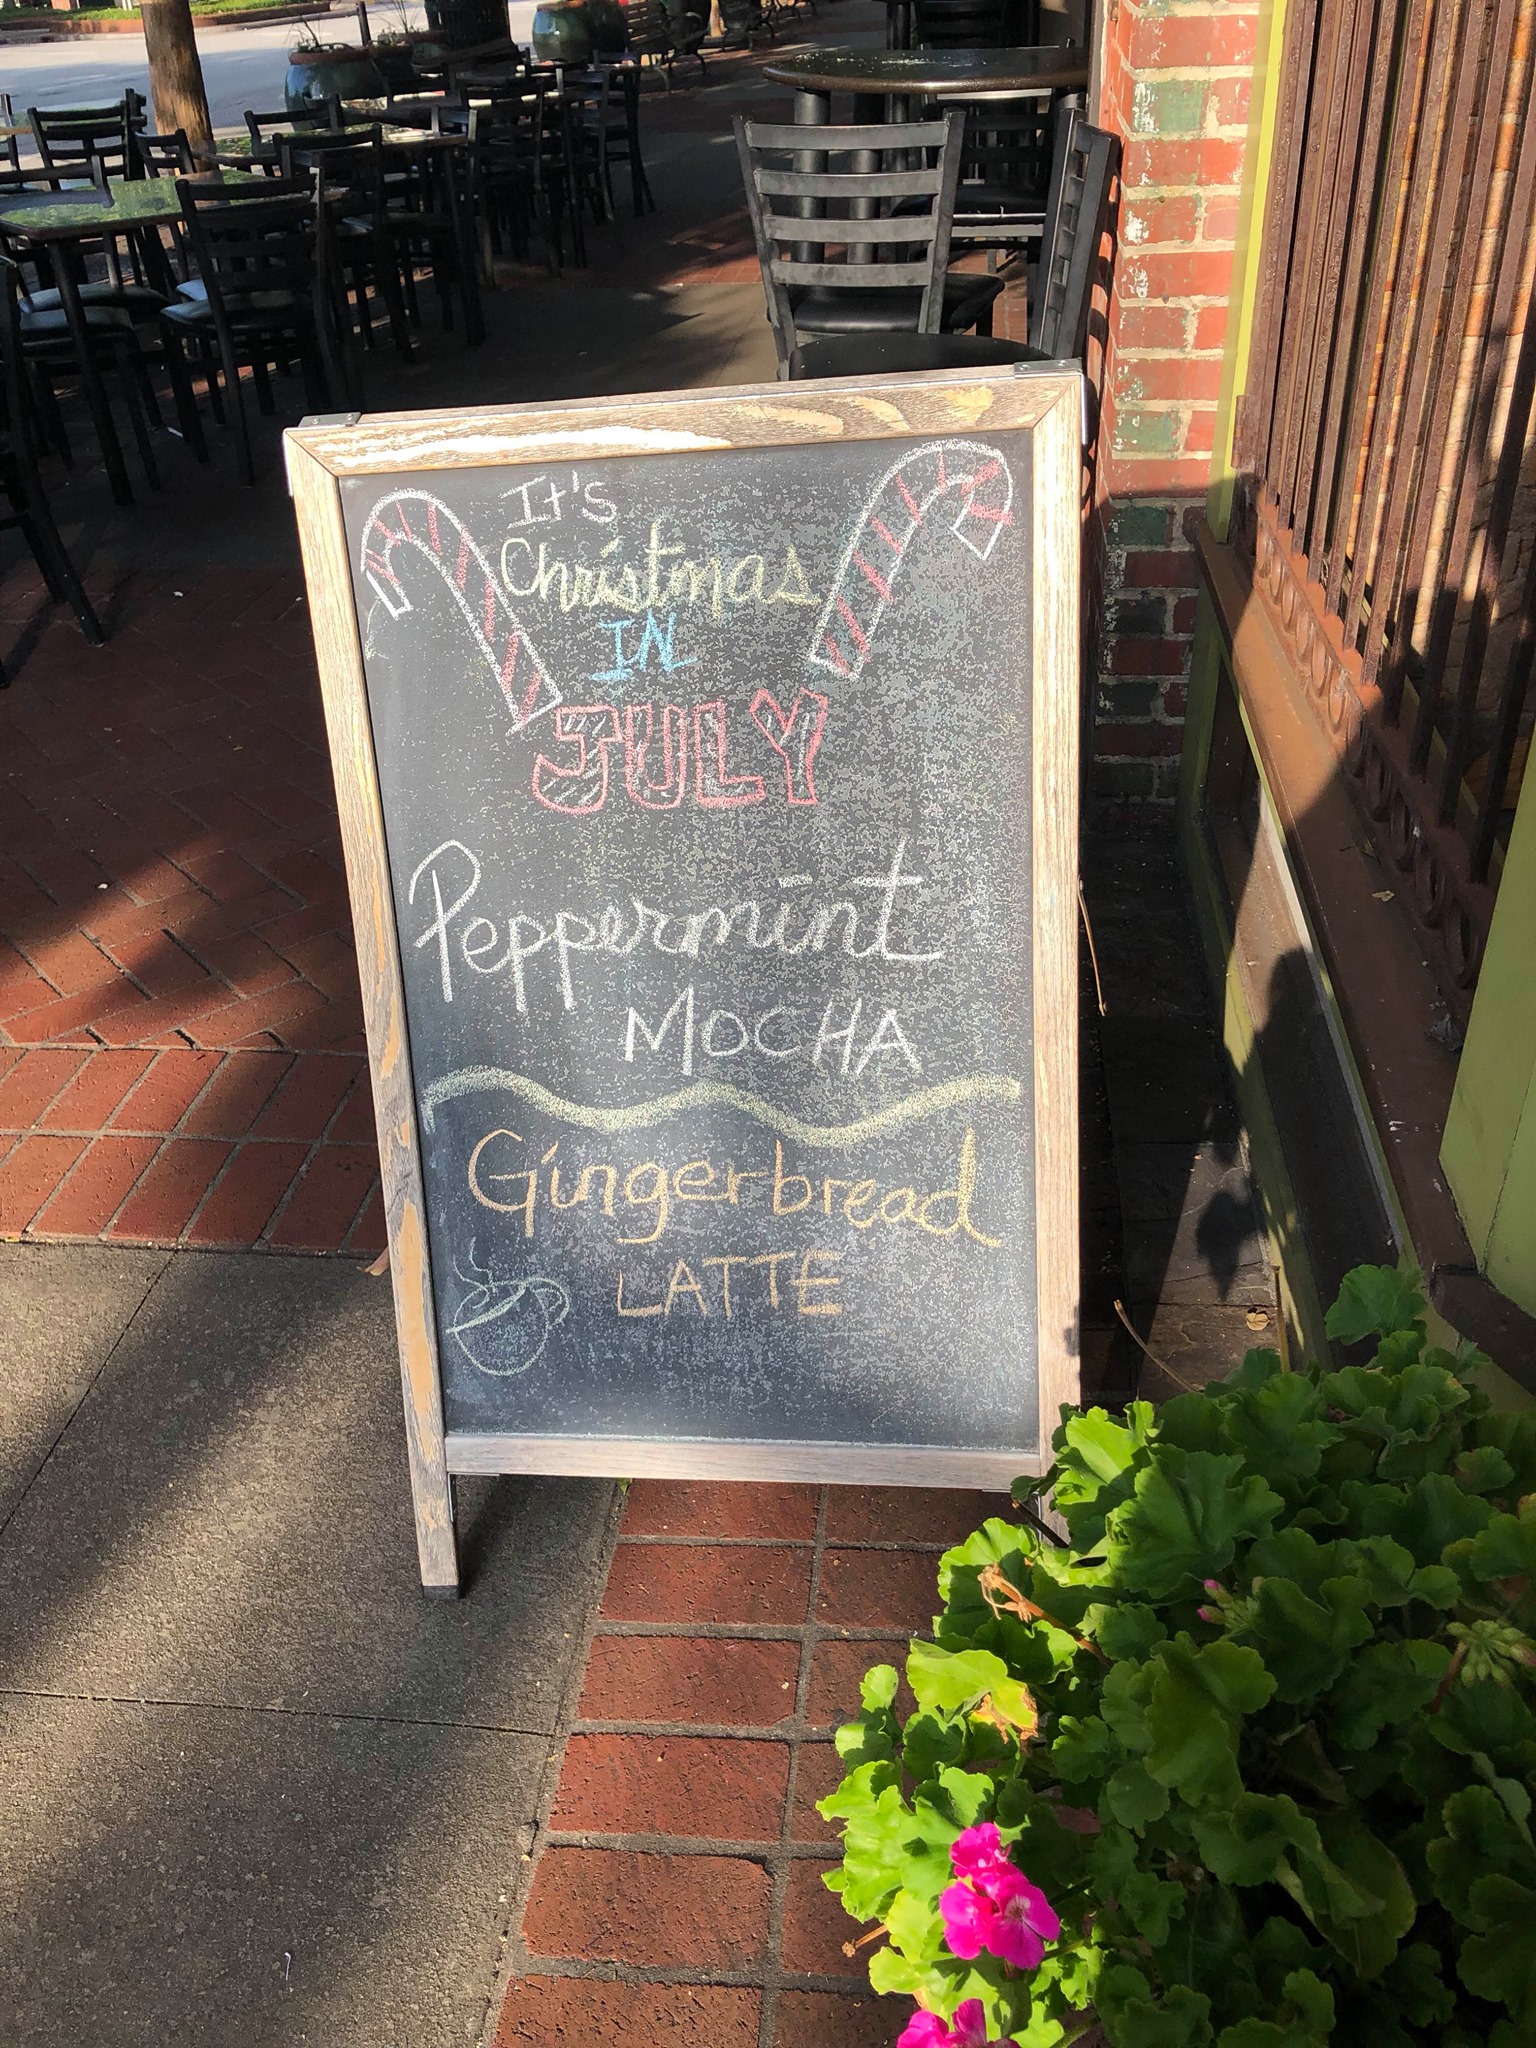 It's
Christmas
IN
JULY
Peppermint
MOCHA
Gingerbread
LATTE